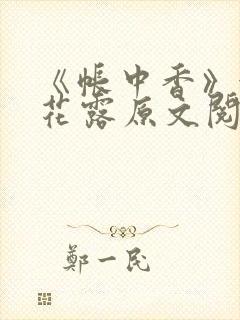 《帐中香》
花露原文阅
郑一民